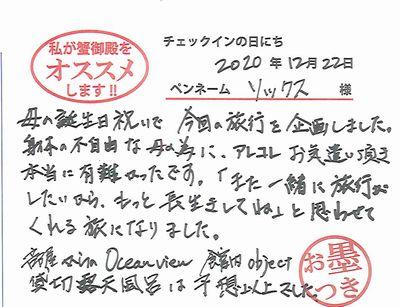 私が蟹御殿を
オススメ
します!!
チェックインの日にち
2020年12月22日
ペンネーム ソックス 様
母の誕生日祝いで 今回の旅行を企画しました。
身体の不自由な母の為に、アレコレお気遣い頂き
本当に有難かったです。「また一緒に旅行が
したいから、もっと長生きしてね」と思わせて
くれる旅になりました。
部屋からの Ocean view 館内 object
貸切露天風呂は予想以上でした。
お墨
つき